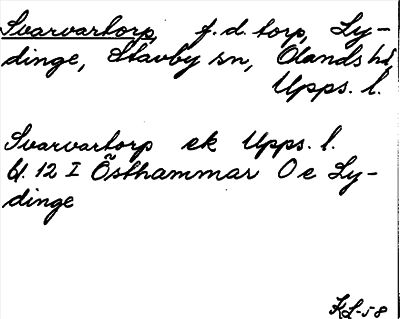 Svarvartorp, f.d. torp, Ly-
dinge, Stavby sn, Olands hd,
Upps. l.
Svarvartorp ek Upps. l.
bl. 12 I Östhammar O e Ly-
dinge
KL-58